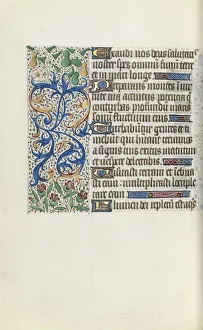 Exaudi nos deus salutaris
noster spes omnium finium terre
et in mari longe
Preparans montes in uir
tute tua accinctus potencia q
conturbas profundum maris
sonum fluctuum eius
Turbabuntur gentes et ti
mebunt qui habitant terminos
a signis tuis exitus matutini
et uespere delectabis
Uisitasti terram et inebria
sti eam multiplicasti locuple
tare eam
Flumen dei repletum est aquis